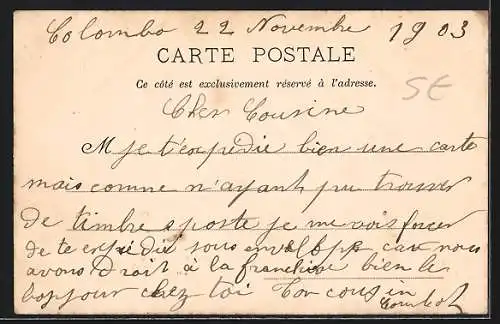 Colombo 22 Novembre 1903
CARTE POSTALE
Ce côté est exclusivement réservé à l'adresse.
SE
Cher Cousine
M je t'expédie bien une carte
mais comme n'ayant pu trouver
de timbre a poste je me vois forcer
de te expédie sous envelopp car nous
avons Droit à la franchise bien le
bonjour chez toi Ton cousin